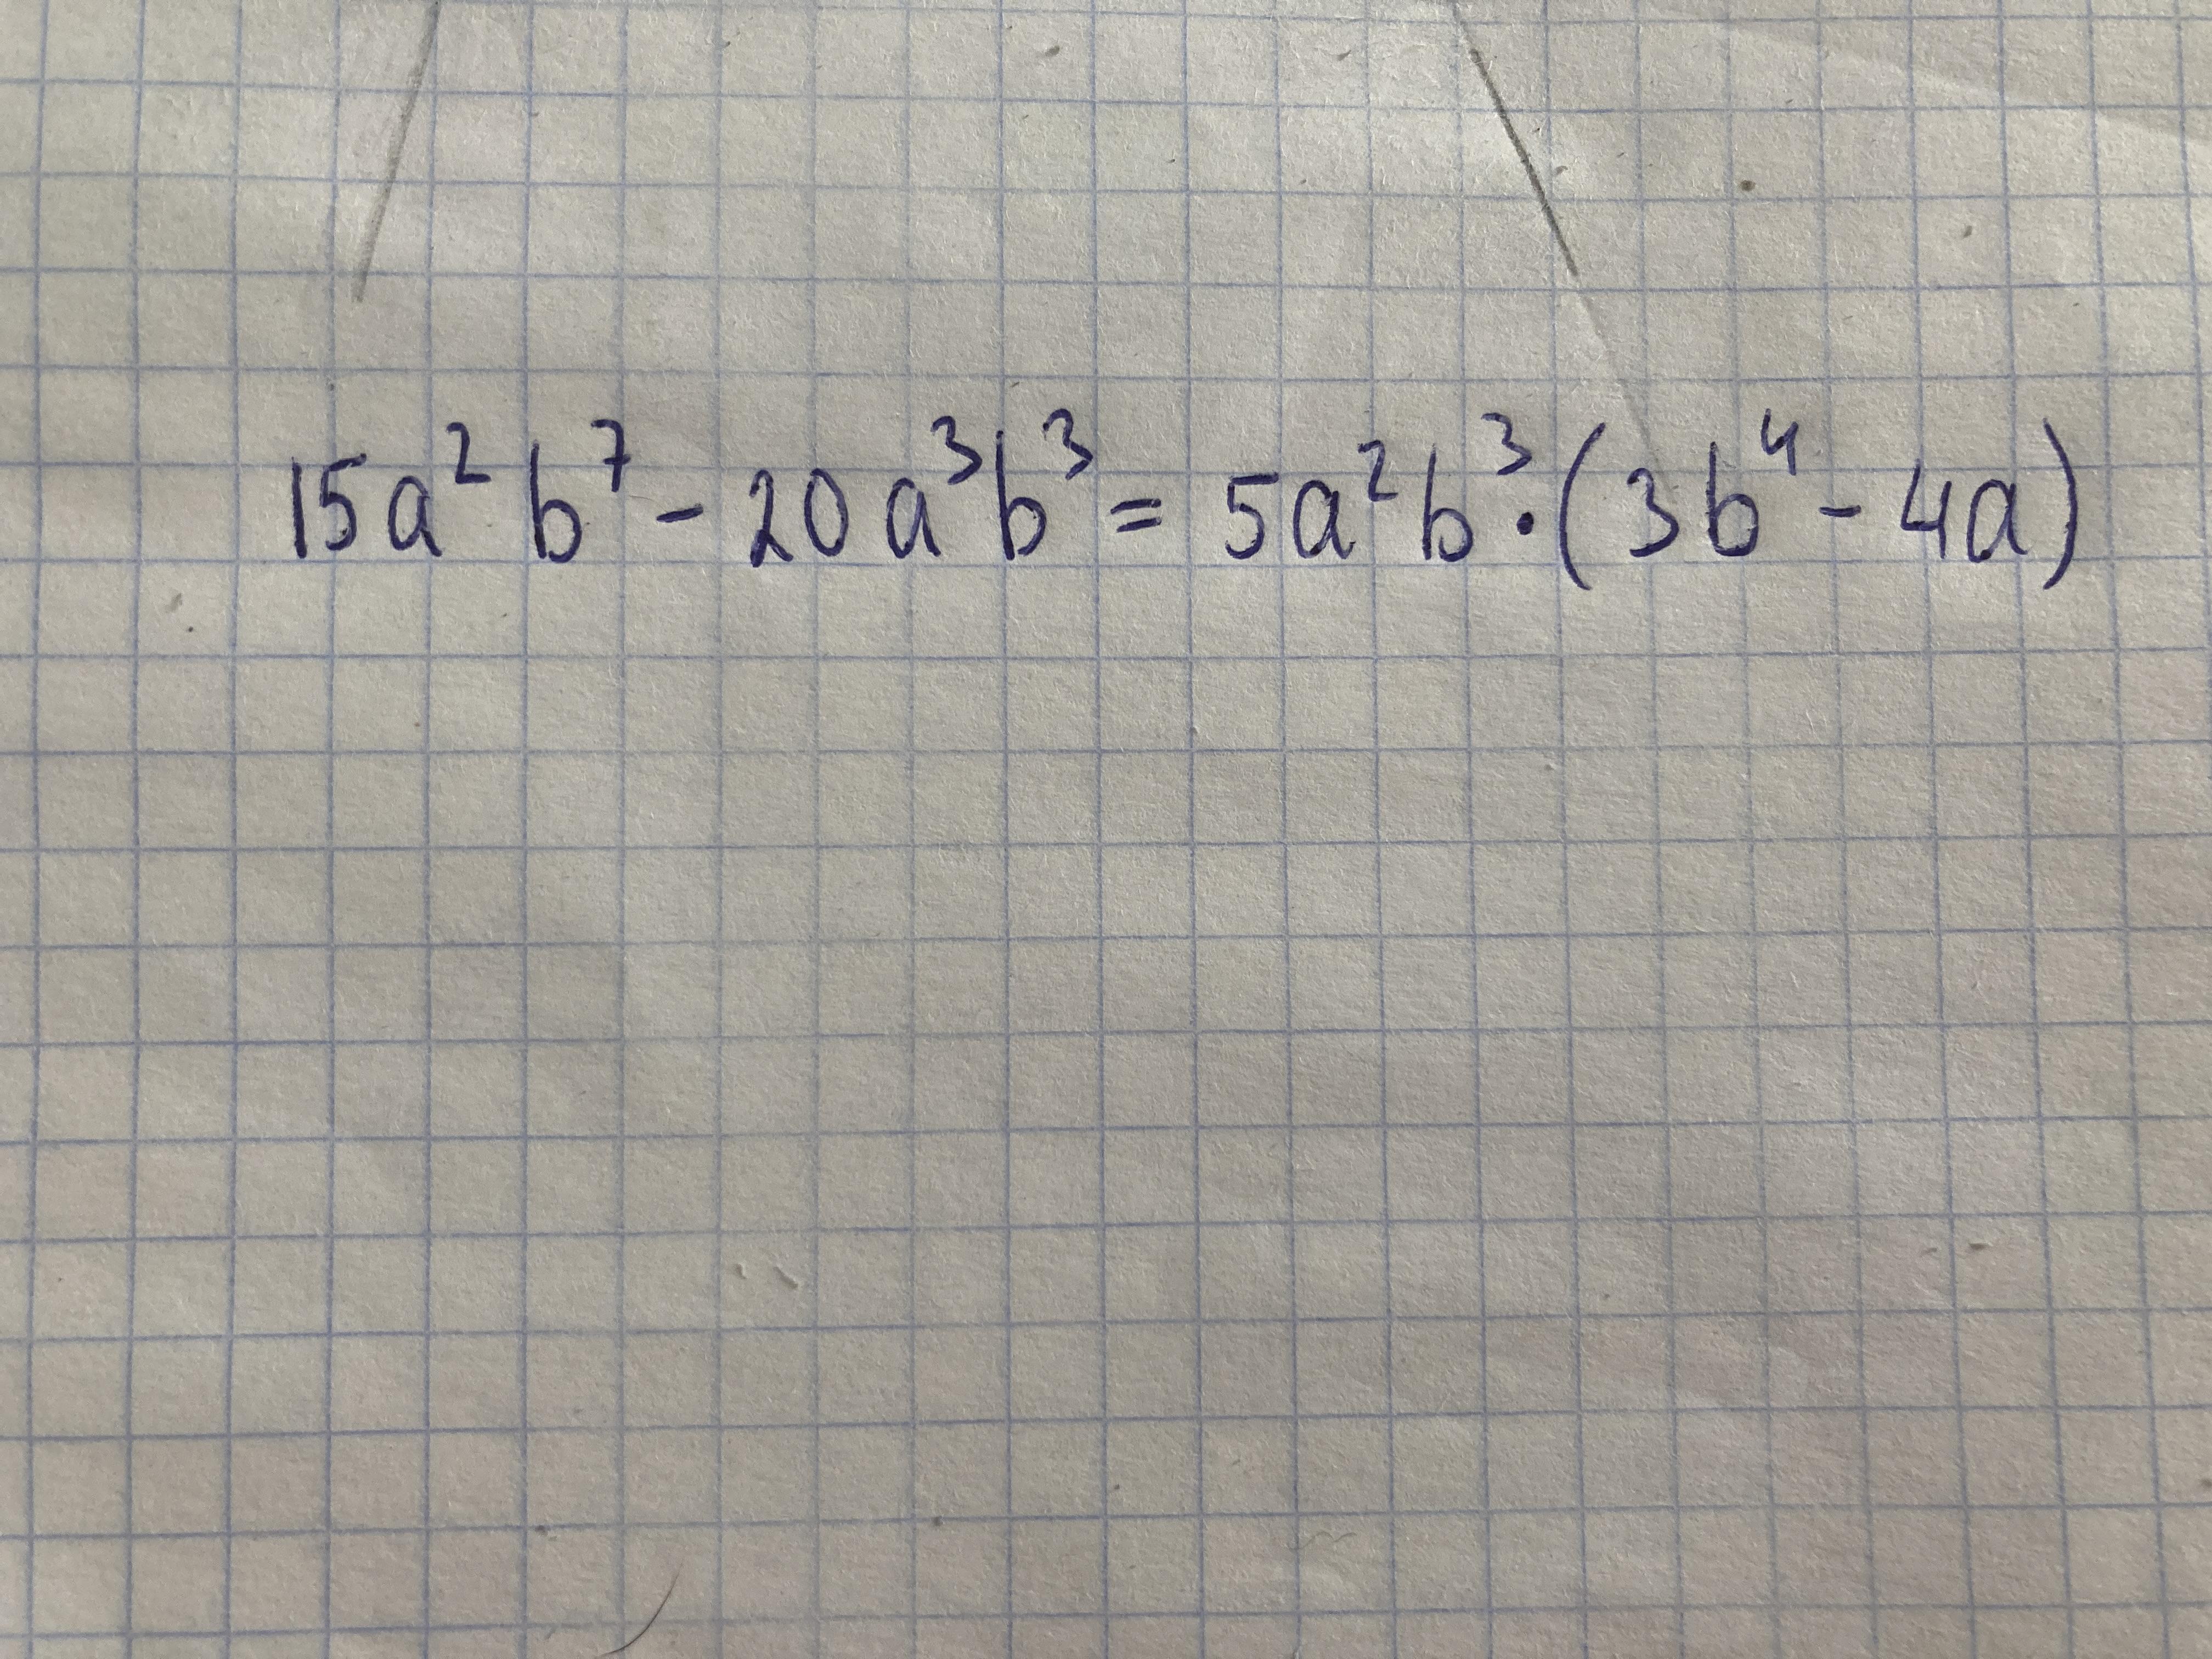 15a²b⁷ - 20a³b³ = 5a²b³·(3b⁴ - 4a)